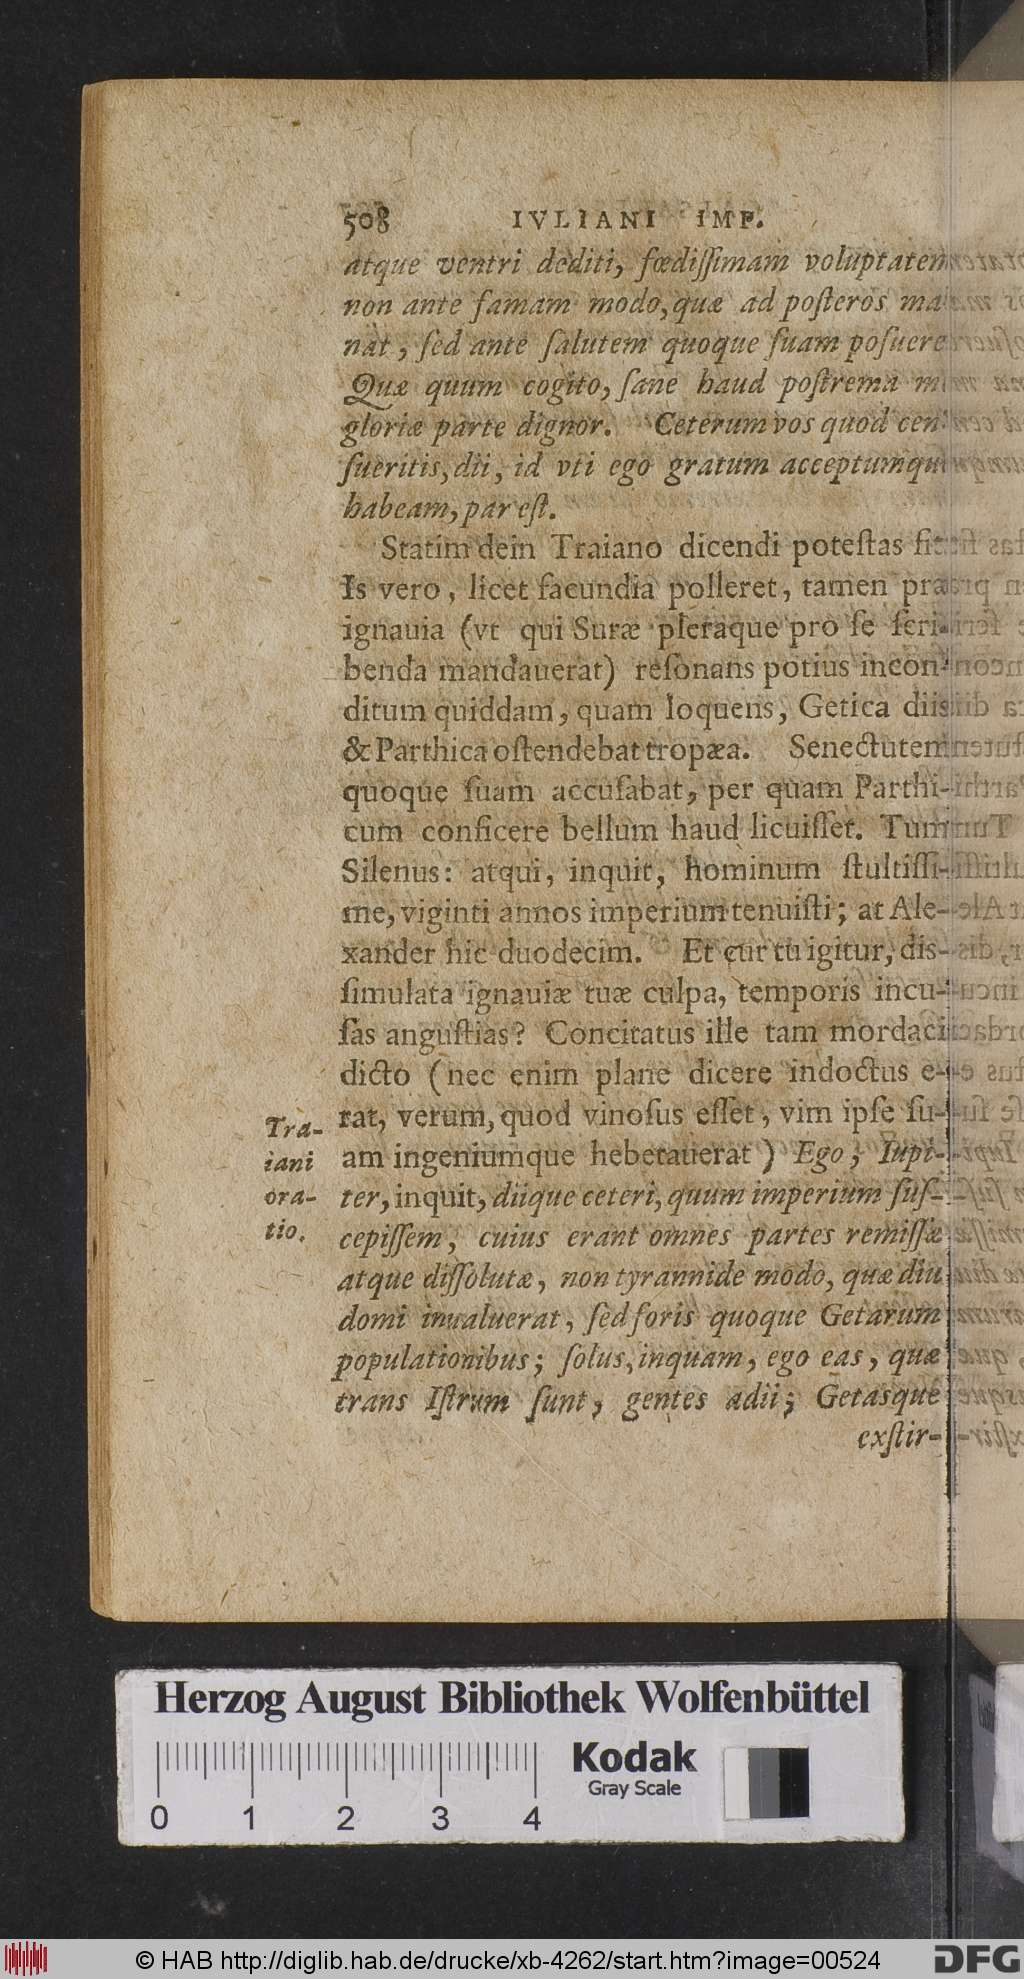 508 IVLIANI IMP.
atque ventri dediti, fœdiſſimam voluptatem
non ante famam modo, quæ ad poſteros ma
nat, ſed ante ſalutem quoque ſuam poſuere
Quæ quum cogito, ſane haud poſtrema
gloriæ parte dignor. Ceterum vos quod cen
ſueritis, dii, id vti ego gratum acceptumqu
habeam, par eſt.
Statim dein Traiano dicendi poteſtas fit
Is vero, licet facundia polleret, tamen præ
ignauia (vt qui Suræ pleraque pro ſe ſcri-
benda mandauerat) reſonans potius incon-
ditum quiddam, quam loquens, Getica diis
& Parthica oſtendebat tropæa. Senectutem
quoque ſuam accuſabat, per quam Parthi-
cum conficere bellum haud licuiſſet. Tum
Silenus: atqui, inquit, hominum ſtultiſſi-
me, viginti annos imperium tenuiſti; at Ale-
xander hic duodecim. Et cur tu igitur, diſ-
ſimulata ignauiæ tuæ culpa, temporis incu-
ſas anguſtias? Concitatus ille tam mordaci
dicto (nec enim plane dicere indoctus e-
rat, verum, quod vinoſus eſſet, vim ipſe ſu-
am ingeniumque hebetauerat) Ego, Iupi-
ter, inquit, diique ceteri, quum imperium ſuſ-
cepiſſem, cuius erant omnes partes remiſſæ
atque diſſolutæ, non tyrannide modo, quæ diu
domi inualuerat, ſed foris quoque Getarum
populationibus; ſolus, inquam, ego eas, quæ
trans Iſtrum ſunt, gentes adii; Getasque
exſtir-
Tra-
iani
ora-
tio.
Herzog August Bibliothek Wolfenbüttel
Kodak
Gray Scale
0 1 2 3 4
© HAB http://diglib.hab.de/drucke/xb-4262/start.htm?image=00524
DFG